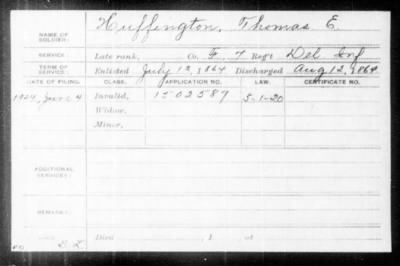 NAME OF SOLDIER: Huffington, Thomas E.
SERVICE: Late rank, Co. F, 7 Reg't Del Inf
TERM OF SERVICE: Enlisted July 12, 1864 Discharged Aug 12, 1864
DATE OF FILING. CLASS. APPLICATION NO. LAW. CERTIFICATE NO.
1924, June 4 Invalid, 1502589 5-1-20
Widow,
Minor,
ADDITIONAL SERVICES:
REMARKS:
Died , 1 at